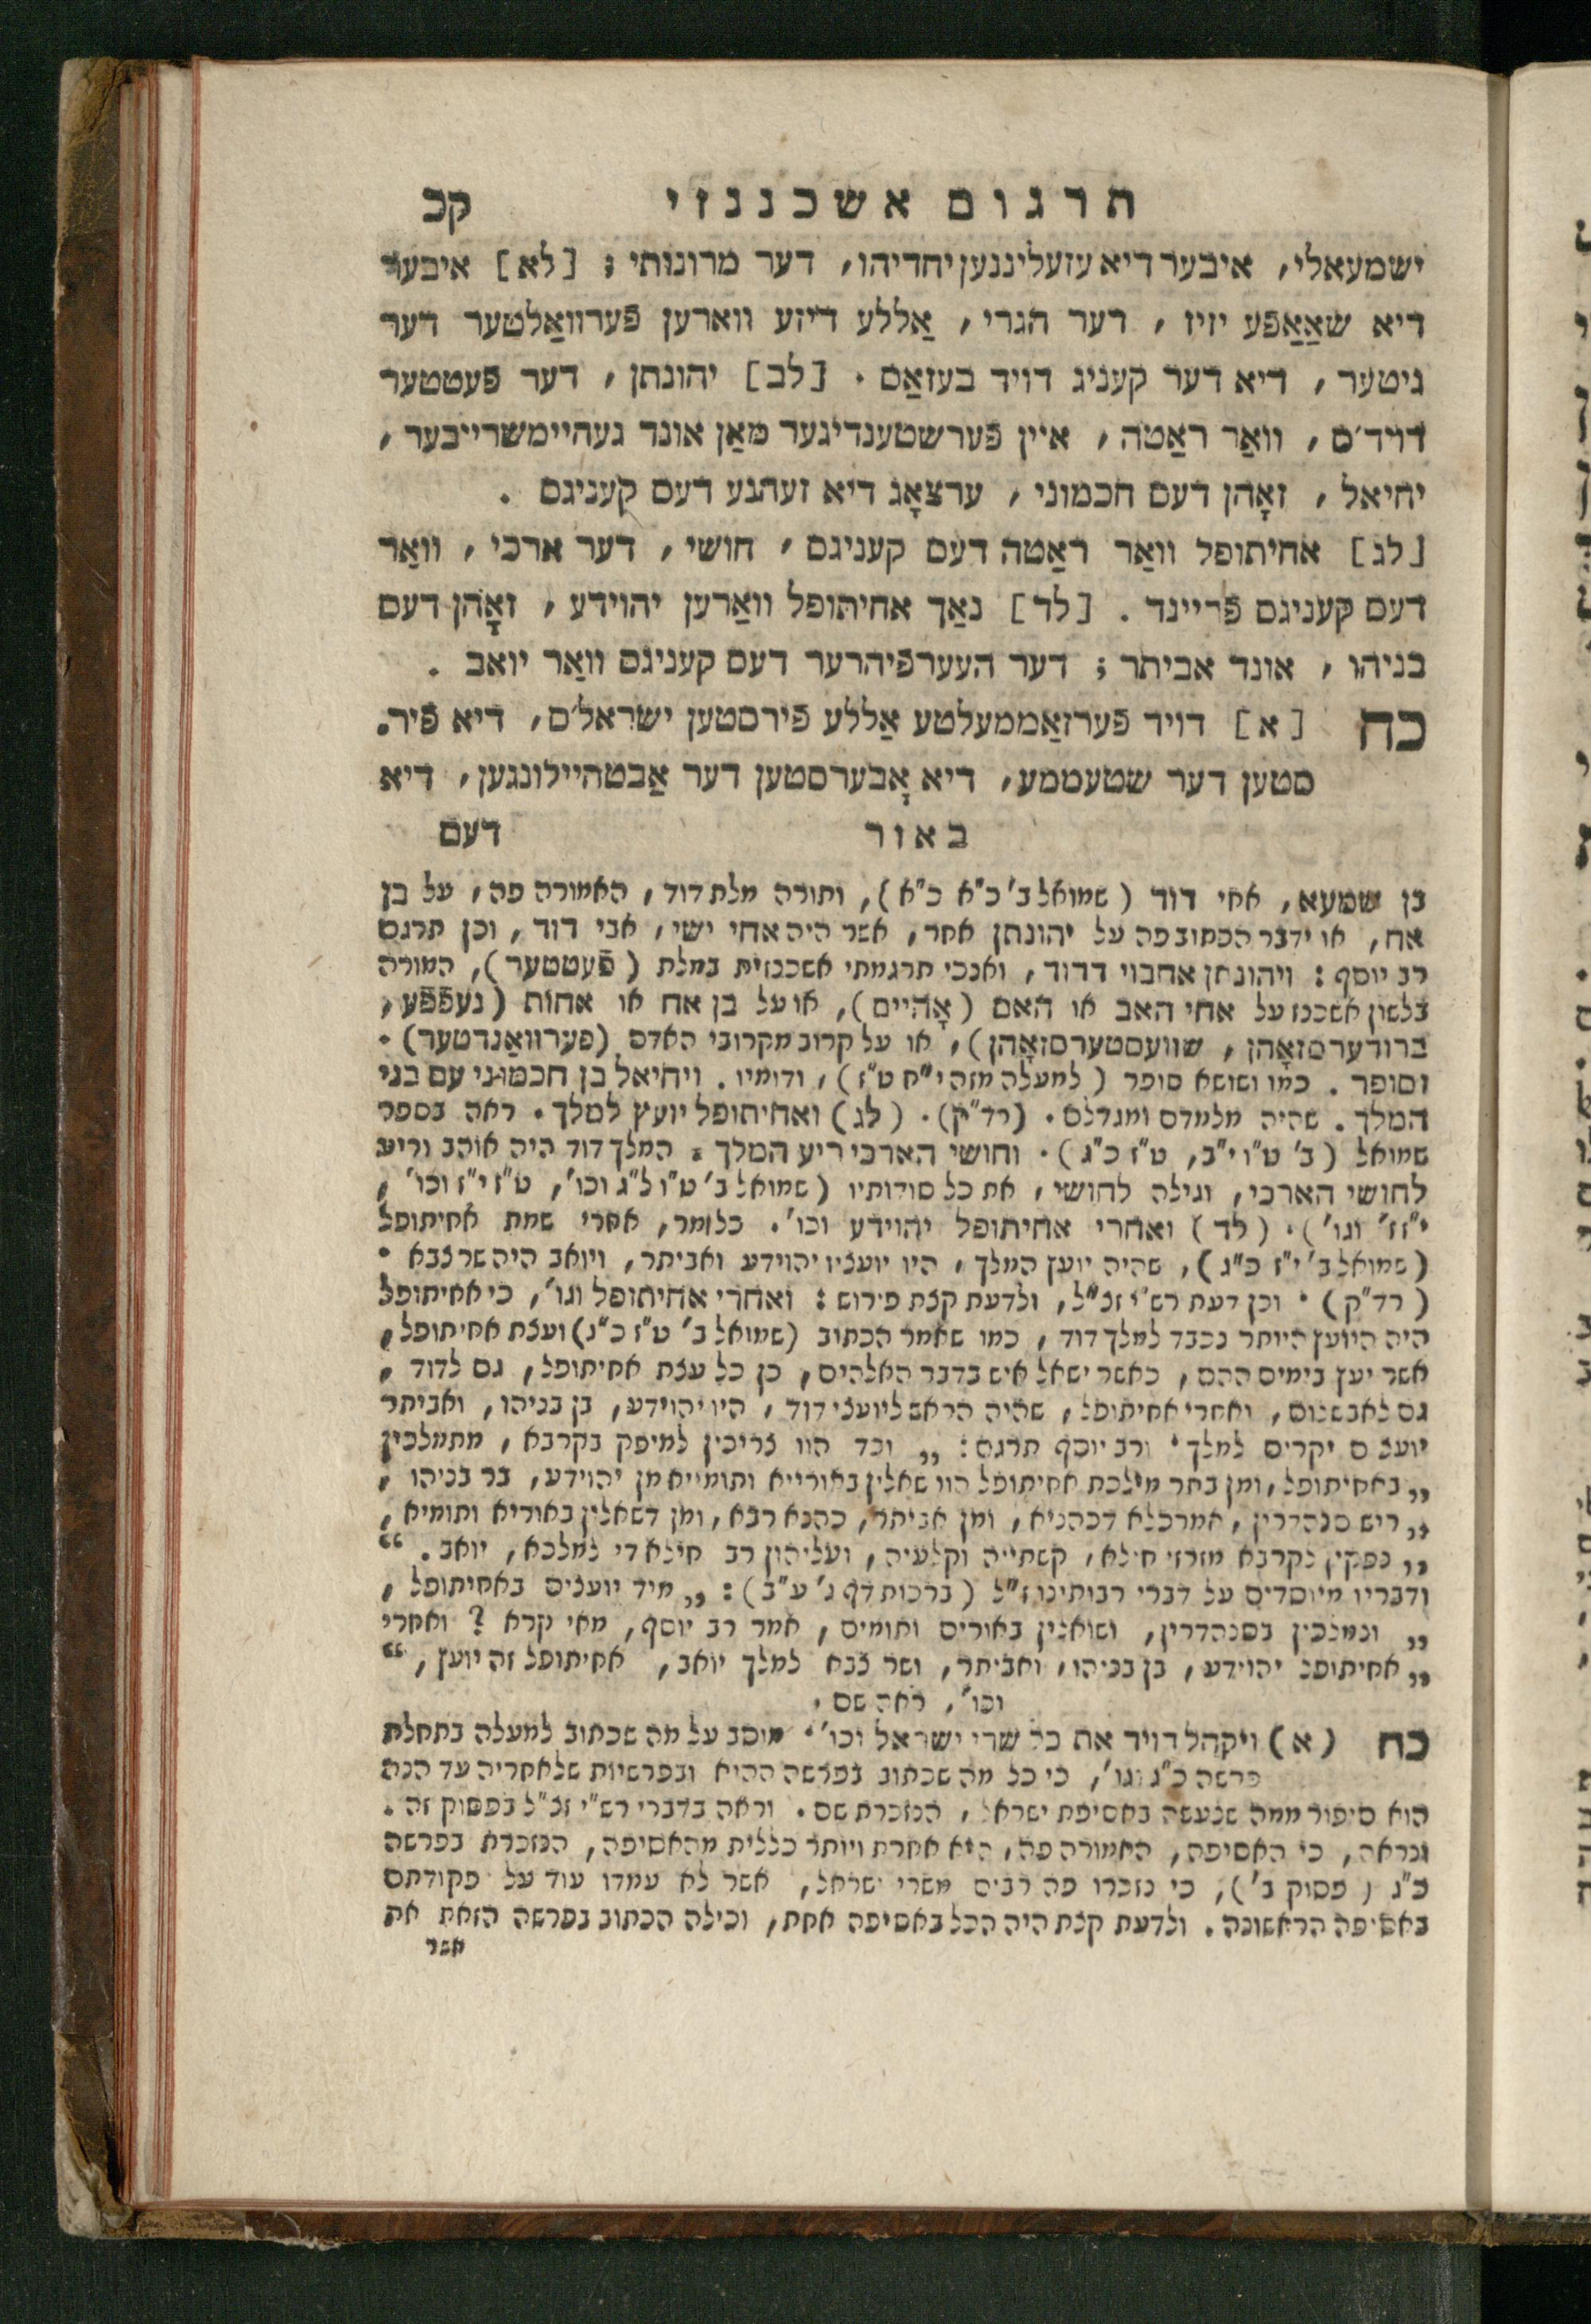 תרגום אשכנזי קכ
ישמעאלי, איבער דיא עזעליננען יחדיהו, דער מרונותי ; [לא] איבער
דיא שאַאַפֿע יזיז, דער הגרי, אַללע דיזע ווארען פֿערוואַלטער דער
גיטער, דיא דער קעניג דויד בעזאַס. [לב] יהונתן, דער פֿעטטער
דויד'ס, וואַר ראַטה, איין פֿערשטענדיגער מאַן אונד געהיימשרייבער,
יחיאל, זאָהן דעס חכמוני, ערצאָג דיא זעהנע דעס קעניגס.
[לג] אחיתופל וואַר ראַטה דעס קעניגס, חושי, דער ארכי, וואַר
דעס קעניגס פֿריינד. [לד] נאַך אחיתופל וואַרען יהוידע, זאָהן דעס
בניהו, אונד אביתר ; דער העערפֿיהרער דעס קעניגס וואַר יואב.
כח [א] דויד פֿערזאַממעלטע אַללע פֿירסטען ישראל'ס, דיא פֿיר-
סטען דער שטעממע, דיא אָבערסטען דער אַבטהיילונגען, דיא
באור דעס
בן שמעא, אחי דוד (שמואל ב' כ"א כ"א), ותורה מלת דוד, האמורה פה, על בן
אח, או ידבר הכתוב פה על יהונתן אחר, אשר היה אחי ישי, אבי דוד, וכן תרגם
רב יוסף : ויהונתן אחבוי דדוד, ואנכי תרגמתי אשכנזית במלת (פֿעטטער), המורה
בלשון אשכנז על אחי האב או האם (אָהיים), או על בן אח או אחות (נעפֿפֿע,
ברודערסזאָהן, שוועסטערסזאָהן), או על קרוב מקרובי האדם (פֿערוואַנדטער).
וסופר. כמו ושושא סופר (למעלה מזה י"ח ט"ז), ודומיו. ויחיאל בן חכמוני עם בני
המלך. שהיה מלמדם ומגדלם. (רד"ק). (לג) ואחיתופל יועץ למלך. ראה בספר
שמואל (ב' ט"ו י"ב, ט"ז כ"ג). וחושי הארכי ריע המלך. המלך דוד היה אוהב וריע
לחושי הארכי, וגילה לחושי, את כל סודותיו (שמואל ב' ט"ו ל"ג וכו', ט"ז י"ז וכו',
י"ז ז' וגו'). (לד) ואחרי אחיתופל יהוידע וכו'. כלומר, אחרי שמת אחיתופל
(שמואל ב' י"ז כ"ג), שהיה יועץ המלך, היו יועציו יהוידע ואביתר, ויואב היה שר צבא.
(רד"ק). וכן דעת רש"י זכ"ל, ולדעת קצת פירוש : ואחרי אחיתופל וגו', כי אחיתופל
היה היועץ היותר נכבד למלך דוד, כמו שאמר הכתוב (שמואל ב' ט"ז כ"ג) ועצת אחיתופל,
אשר יעץ בימים ההם, כאשר ישאל איש בדבר האלהים, כן כל עצת אחיתופל, גם לדוד,
גם לאבשלום, ואחרי אחיתופל, שהיה הראש ליועצי דוד, היו יהוידע, בן בניהו, ואביתר
יועצים יקרים למלך. ורב יוסף תרגם : „ וכד הוו צריכין למיפק בקרבא, מתמלכין
„ באחיתופל, ומן בתר מילכת אחיתופל הוו שאלין באורייא ותומייא מן יהוידע, בר בניהו,
„ ריש סנהדרין, אמרכלא דכהניא, ומן אביתר, כהנא רבא, ומן דשאלין באוריא ותומיא,
„ נפקין בקרבא מזרזי חילא, קשתייה וקלעיה, ועליהון רב חילא די למלכא, יואב. “
ודבריו מיוסדים על דברי רבותינו ז"ל (ברכות דף ג' ע"ב) : „ מיד יועצים באחיתופל,
„ ונמלכין בסנהדרין, ושואלין באורים ותומים, אמר רב יוסף, מאי קרא ? ואחרי
„ אחיתופל יהוידע, בן בניהו, ואביתר, ושר צבא למלך יואב, אחיתופל זה יועץ, “
וכו', ראה שם.
כח (א) ויקהל דויד את כל שרי ישראל וכו'. מוסב על מה שכתוב למעלה בתחלת
פרשה כ"ג וגו', כי כל מה שכתוב בפרשה ההיא ובפרשיות שלאחריה עד הנה
הוא סיפור ממה שנעשה באסיפת ישראל, הנזכרת שם. וראה בדברי רש"י זכ"ל בפסוק זה.
ונראה, כי האסיפה, האמורה פה, היא אחרת ויותר כללית מהאסיפה, הנזכרת בפרשה
כ"ג (פסוק ב'), כי נזכרו פה רבים משרי ישראל, אשר לא עמדו עוד על פקודתם
באסיפה הראשונה. ולדעת קצת היה הכל באסיפה אחת, וכילה הכתוב בפרשה הזאת את
אשר